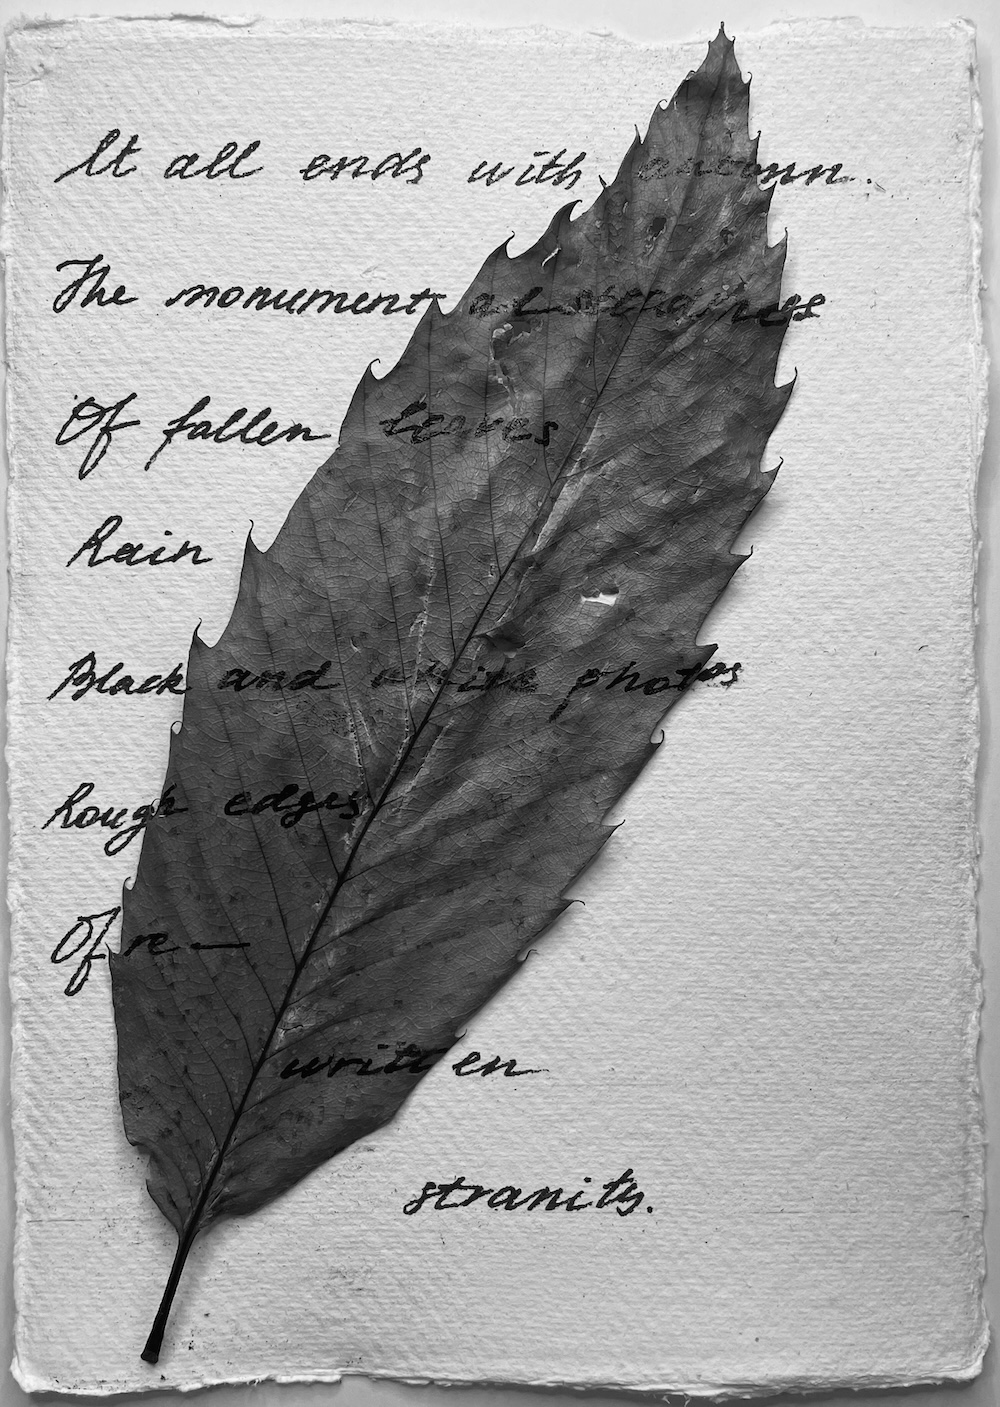 It all ends with autumn.
The monumental steadiness
Of fallen leaves
Rain
Black and white photos
Rough edges
Of re —
written
stranits.